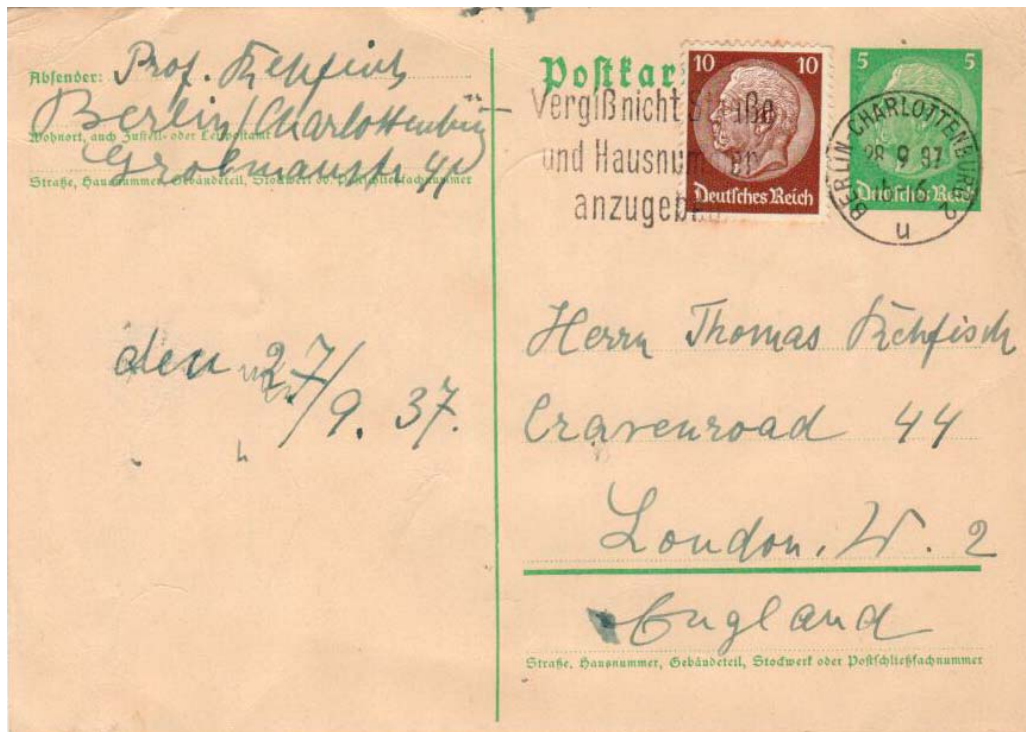 Absender: Prof. Rehfisch
Berlin/Charlottenbg
Wohnort, auch Zustell- oder Leitpostamt
Grolmanstr.
Straße, Hausnummer, Gebäudeteil, Stockwerk od. Postschließfachnummer
den 27/9. 37.
Postkar
Vergiß nicht Straße
und Hausnummer
anzugeben
10 10
Deutsches Reich
5 5
Deutsches Reich
BERLIN-CHARLOTTENBURG 2
28 9 37
u
Herrn Thomas Rehfisch
Cravenroad 44
London, W. 2
England
Straße, Hausnummer, Gebäudeteil, Stockwerk oder Postschließfachnummer